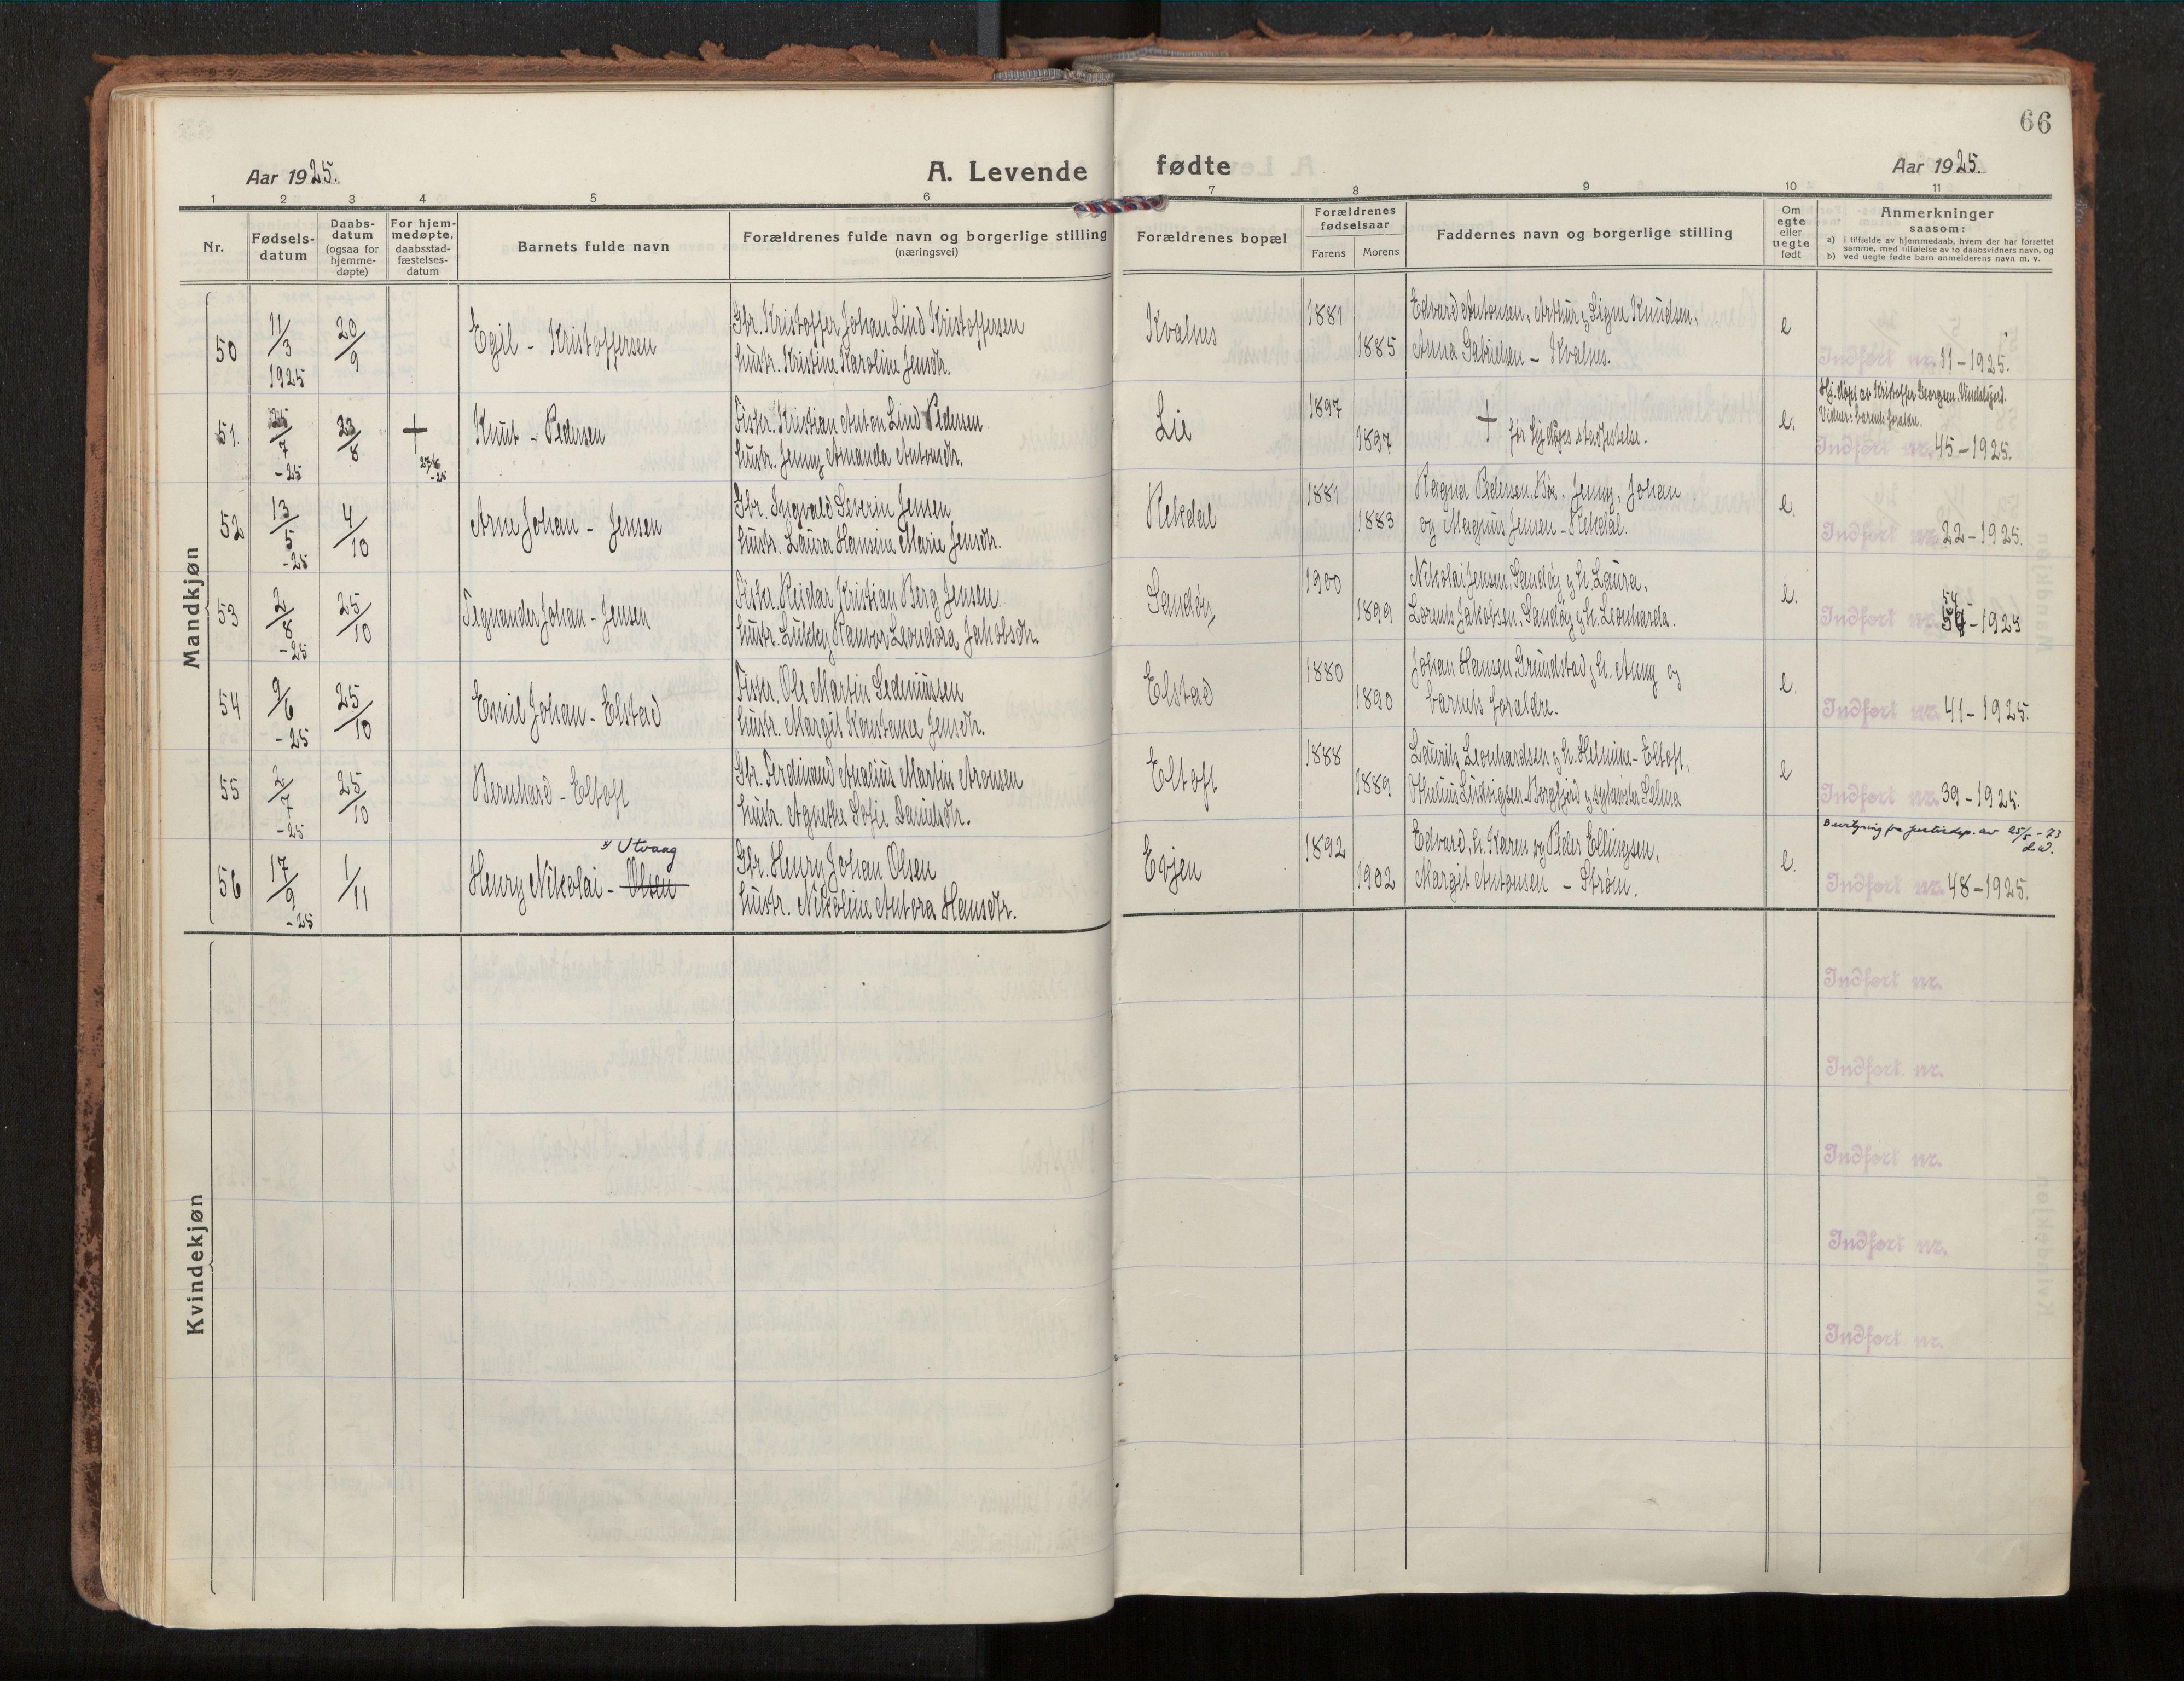 66
Aar 1925.
A. Levende fødte
Aar 1925.
1 2 3 4 5 6 7 8 9 10 11
Nr.
Fødsels-
datum
Daabs-
datum
(ogsaa for
hjemme-
døpte)
For hjem-
medøpte,
daabsstad-
fæstelses-
datum
Barnets fulde navn
Forældrenes fulde navn og borgerlige stilling
(næringsvei)
Forældrenes bopæl
Forældrenes
fødselsaar
Farens Morens
Faddernes navn og borgerlige stilling
Om
egte
eller
uegte
født
Anmerkninger
saasom:
a) i tilfælde av hjemmedaab, hvem der har forrettet
samme, med tilføielse av to daabsvidners navn, og
b) ved uegte fødte barn anmelderens navn m. v.
Mandkjøn
50 11/3 1925 20/9 Egil - Kristoffersen
Gbr. Kristoffer Johan Lind Kristoffersen
hustr. Kristine Karoline Jensdtr.
Kvalnes 1881 1885
Edvard Antonsen, Arthur og Signe Knudsen,
Anna Gabrielsen - Kvalnes.
e
Indført nr. 11-1925.
51. 25/7 -25 23/8 + 27/8 -25 Knut - Pedersen
Fisker. Kristian Anton Lind Pedersen
hustr. Jenny Amanda Antonsdtr.
Lie 1897 1897
+ før hj.døpes stadfestelse.
e.
Hj. døpt av Kristoffer Georgsen,
Vidner: barnets foreldre.
Indført nr. 45-1925.
52 13/5 -25 4/10 Arne Johan - Jensen
Gbr. Ingvald Severin Jensen
hustr. Laura Hansine Marie Jensdtr.
Rekdal 1881 1883
Ragna Pedersen, Bø, Jenny, Johan
og Magnus Jensen - Rekdal.
e.
Indført nr. 22-1925.
53 2/8 -25 25/10 Tegnander Johan - Jensen
Fisker. Reidar Kristian Berg Jensen
hustr. Lukky Ranvor Leondora Jakobsdtr.
Sandøy 1900 1899
Nikolai Jensen, Sandøy og h. Laura,
Lorents Jakobsen, Sandøy og h. Leonharda.
e.
54
Indført nr. -1925
54 9/6 -25 25/10 Emil Johan - Elstad
Fisker. Ole Martin Sedeniussen
hustr. Margit Konstance Jensdtr.
Elstad 1880 1890
Johan Hansen, Grundstad, h. Anny og
barnets foreldre.
e.
Indført nr. 41-1925.
55 2/7 -25 25/10 Bernhard - Eltoft
Gbr. Ferdinand Analius Martin Aronsen
hustr. Agnethe Sofie Danielsdtr.
Eltoft 1888 1889
Laurits Leonhardsen og h. Helmine - Eltoft,
Othelius Ludvigsen - Borgfjord og Selma
e
Indført nr. 39-1925.
56 17/9 -25 1/11 Henry Nikolai - Olsen
Utvaag
Gbr. Henry Johan Olsen
hustr. Nikoline Antora Hansdtr.
Evjen 1892 1902
Edvard, h. Karen og Peder Ellingsen,
Margit Antonsen - Strøm.
e.
Bevilgning fra justisdep. av 25/5 -73
Indført nr. 48-1925.
Kvindekjøn
Indført nr.
Indført nr.
Indført nr.
Indført nr.
Indført nr.